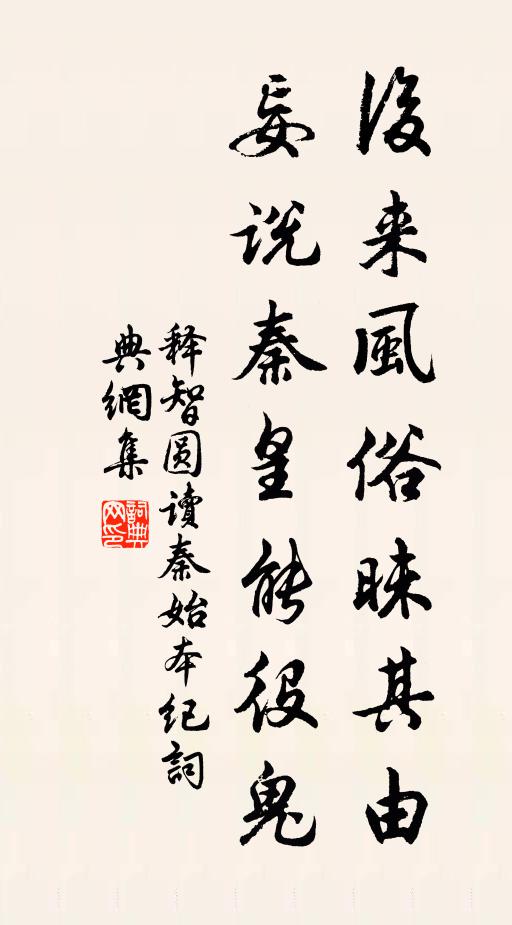 後来風俗昧其由
妄说秦皇能役鬼
释智圆读秦始本纪詞
典網集
詞典网印